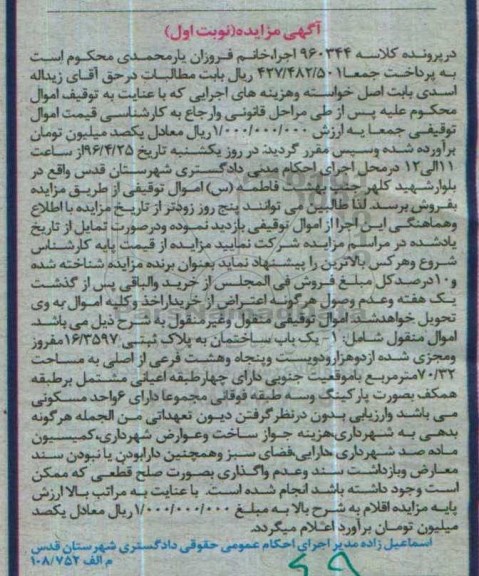 آگهی مزایده(نوبت اول)
درپرونده کلاسه ۹۶۰۳۴۴ اجرا،خانم فروزان یارمحمدی محکوم است
به پرداخت جمعا ۴۲۷/۴۸۲/۵۰۱ ریال بابت مطالبات درحق آقای زیداله
اسدی بابت اصل خواسته وهزینه های اجرایی که با عنایت به توقیف اموال
محکوم علیه پس از طی مراحل قانونی وارجاع به کارشناسی قیمت اموال
توقیفی جمعا به ارزش ۱/۰۰۰/۰۰۰/۰۰۰ریال معادل یکصد میلیون تومان
برآورده شده وسپس مقرر گردید: در روز یکشنبه تاریخ ۹۶/۴/۲۵از ساعت
۱۱الی۱۲ درمحل اجرای احکام مدنی دادگستری شهرستان قدس واقع در
بلوارشهید کلهر جنب بهشت فاطمه (س) اموال توقیفی از طریق مزایده
بفروش برسد. لذا طالبین می توانند پنج روز زودتر از تاریخ مزایده با اطلاع
وهماهنگی این اجرا از اموال توقیفی بازدید نموده ودرصورت تمایل از تاریخ
یادشده در مراسم مزایده شرکت نمایید مزایده از قیمت پایه کارشناس
شروع وهرکس بالاترین را پیشنهاد نماید بعنوان برنده مزایده شناخته شده
و۱۰درصدکل مبلغ فروش فی المجلس از خرید والباقی پس از گذشت
یک هفته وعدم وصول هرگونه اعتراض از خریداراخذ وکلیه اموال به وی
تحویل خواهدشد. اموال توقیفی منقول وغیرمنقول به شرح ذیل می باشد.
اموال منقول شامل: ۱- یک باب ساختمان به پلاک ثبتی ۱۶/۳۵۹۷مفروز
ومجزی شده ازدوهزارودویست وپنجاه وهشت فرعی از اصلی به مساحت
۷۰/۳۲مترمربع باموقعیت جنوبی دارای چهارطبقه اعیانی مشتمل برطبقه
همکف بصورت پارکینگ وسه طبقه فوقانی مجموعا دارای ۶واحد مسکونی
می باشد وارزیابی بدون درنظرگرفتن دیون تعهداتی من الجمله هرگونه
بدهی به شهرداری،هزینه جواز ساخت وعوارض شهرداری،کمیسیون
ماده صد شهرداری ،دارایی،فضای سبز وهمچنین دارابودن یا نبودن سند
معارض وبازداشت سند وعدم واگذاری بصورت صلح قطعی که ممکن
است وجود داشته باشد انجام شده است. با عنایت به مراتب بالا ارزش
پایه مزایده اقلام به شرح بالا به مبلغ ۱/۰۰۰/۰۰۰/۰۰۰ریال معادل یکصد
میلیون تومان برآورد اعلام میگردد.
اسماعیل زاده مدیر اجرای احکام عمومی حقوقی دادگستری شهرستان قدس
م الف ۱۰۸/۷۵۲